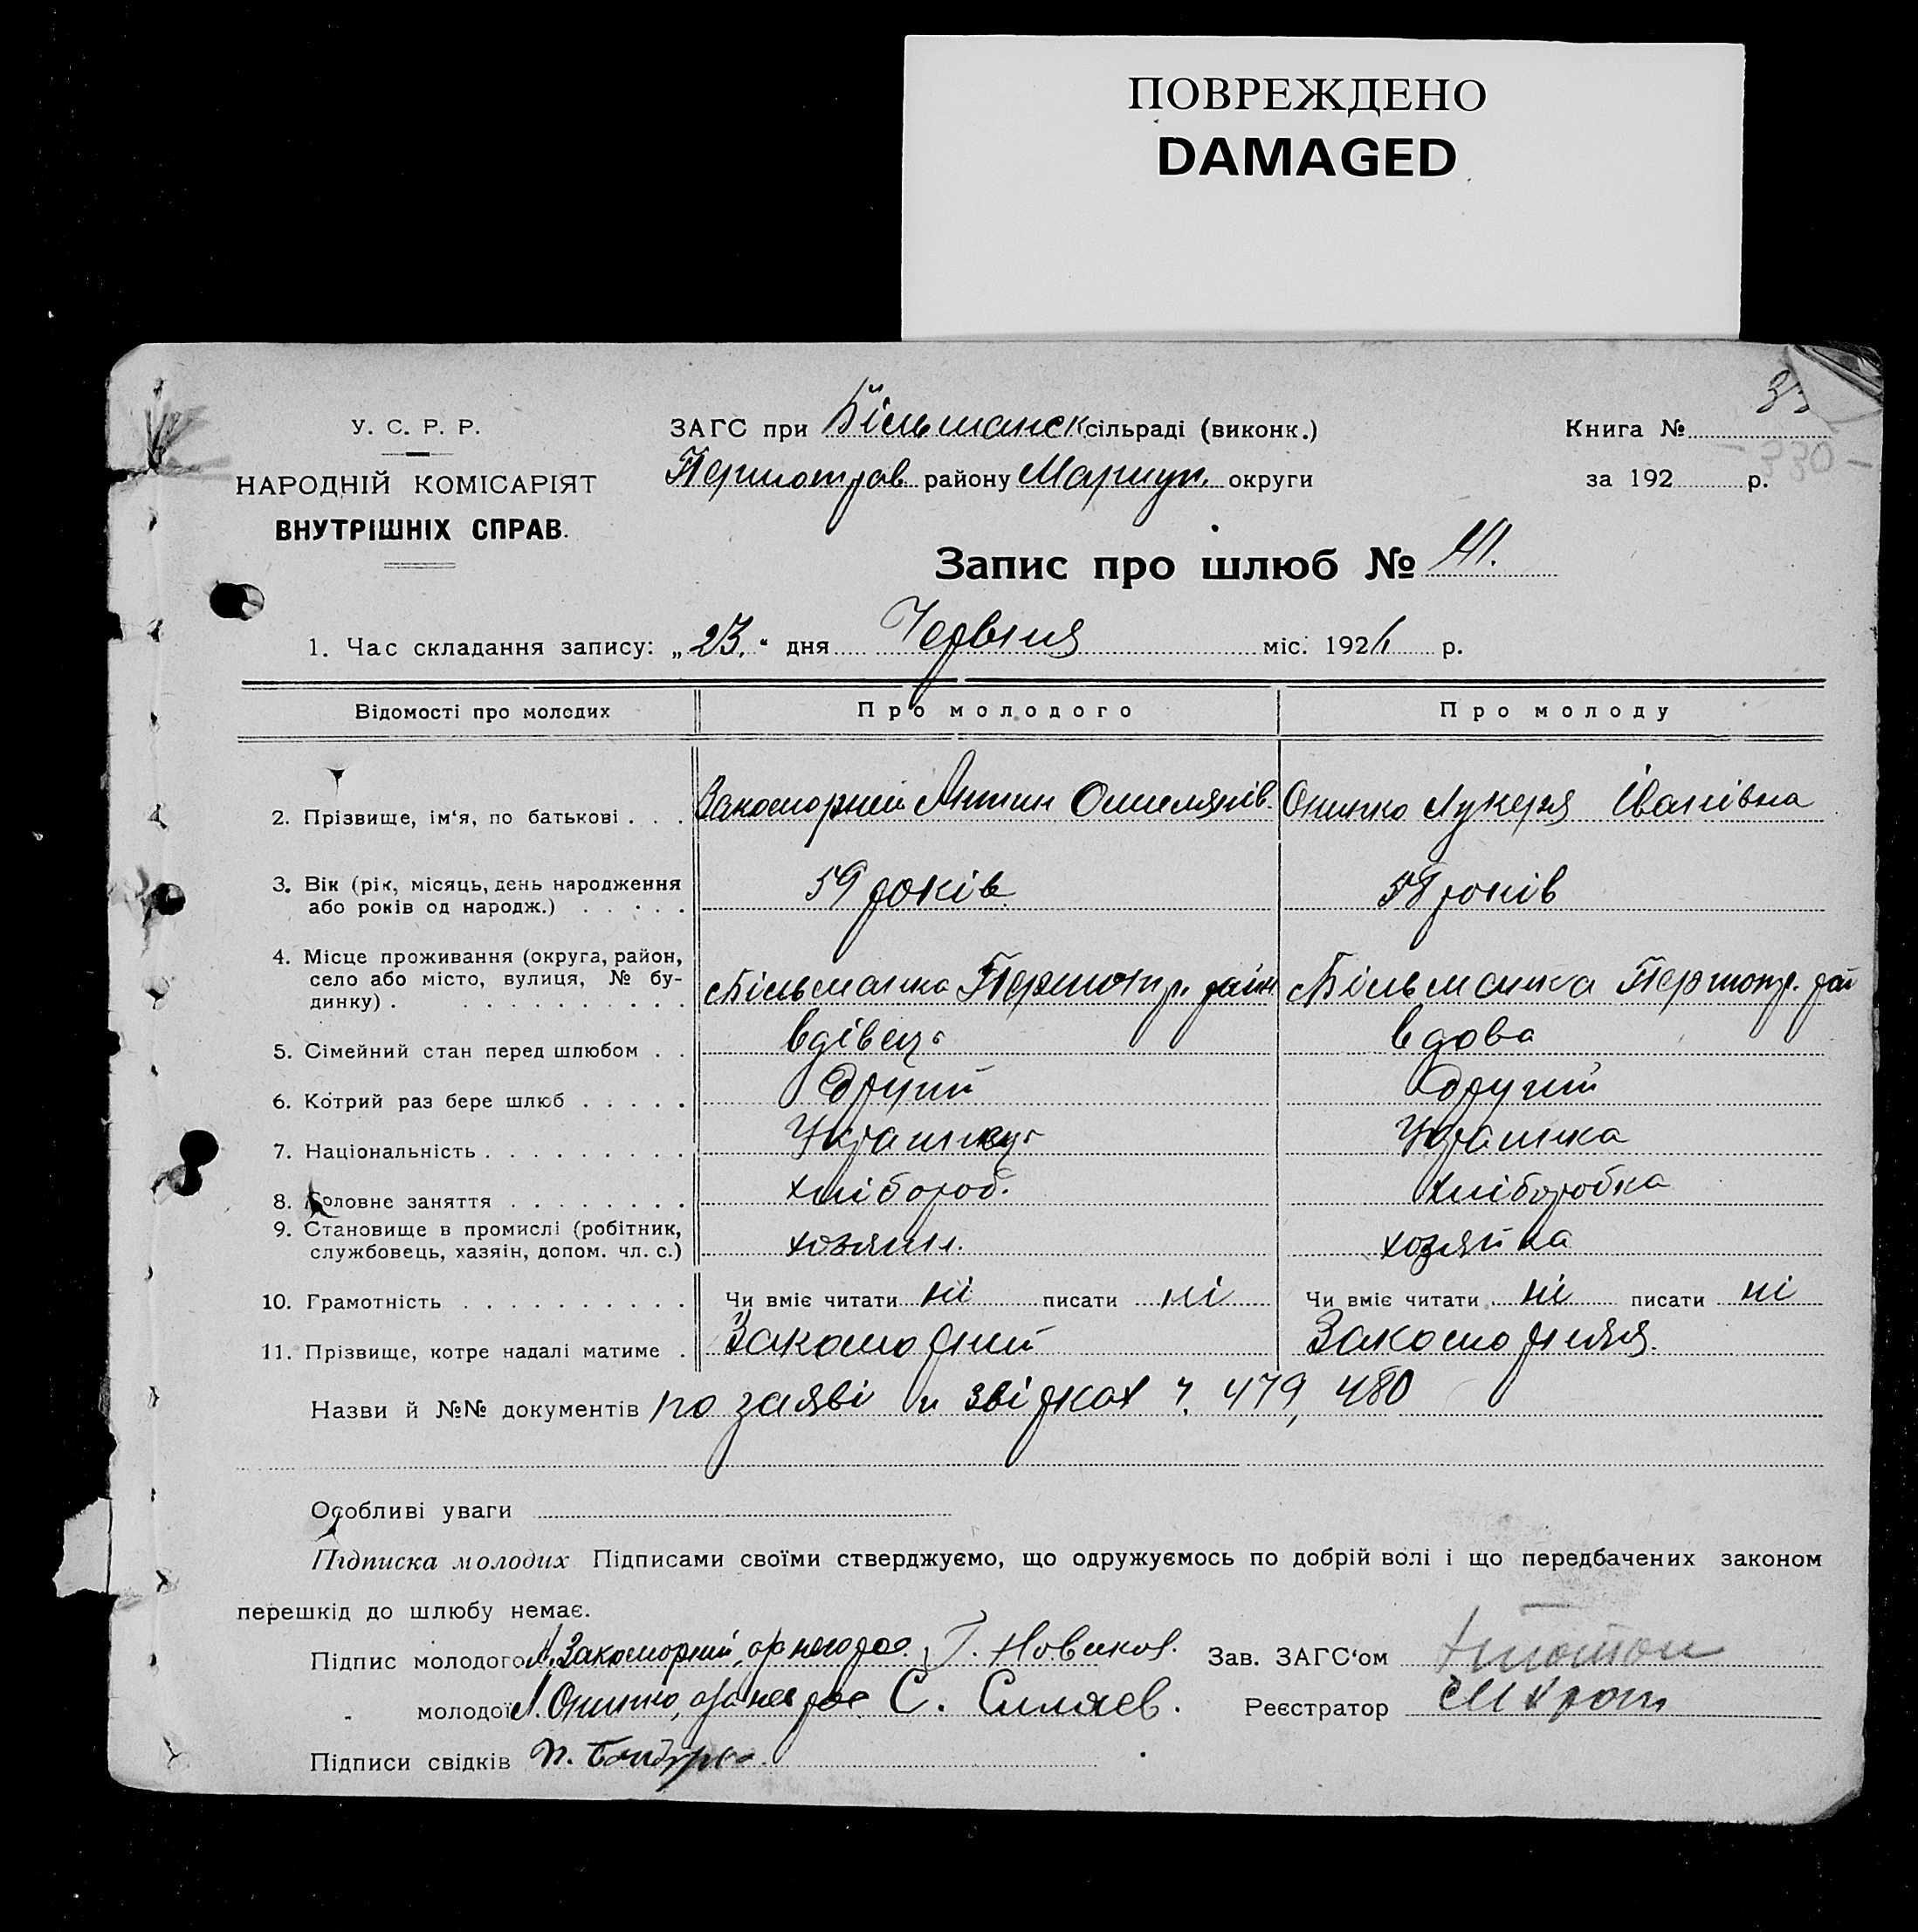 ПОВРЕЖДЕНО
DAMAGED
У. С. Р. Р.
НАРОДНІЙ КОМІСАРІЯТ
ВНУТРІШНІХ СПРАВ.
ЗАГС при Більманск сільраді (виконк.)
Першотрав району Маріуп. округи
Книга №
за 192 р.
Запис про шлюб № 41.
1. Час складання запису: „23.“ дня Червня міс. 1926 р.
Відомості про молодих Про молодого Про молоду
2. Прізвище, ім'я, по батькові . . . Закоморний Антин Омелянів. Онипко Лукеря Іванівна
3. Вік (рік, місяць, день народження
або років од народж.) . . . . . 59 років 58 років
4. Місце проживання (округа, район,
село або місто, вулиця, № бу-
динку) . . . . . . . . . . Більманка Першотр. район Більманка Першотр. рай
5. Сімейний стан перед шлюбом . . вдівець вдова
6. Котрий раз бере шлюб . . . . . Другий Другий
7. Національність . . . . . . . . . Українець Українка
8. Головне заняття . . . . . . . . хлібороб. хліборобка
9. Становище в промислі (робітник,
службовець, хазяін, допом. чл. с.) хозяин. хозяйка
10. Грамотність . . . . . . . . . . Чи вміє читати ні писати ні Чи вміє читати ні писати ні
11. Прізвище, котре надалі матиме . Закоморний Закоморняя.
Назви й №№ документів по заяві и звідках ч. 479, 480
Особливі уваги
Підписка молодих Підписами своїми стверджуємо, що одружуємось по добрій волі і що передбачених законом
перешкід до шлюбу немає.
Підпис молодого А. Закоморний, Г. Новиков. Зав. ЗАГС'ом
молодої Л. Онипко, С. Силяев. Реєстратор
Підписи свідків П.